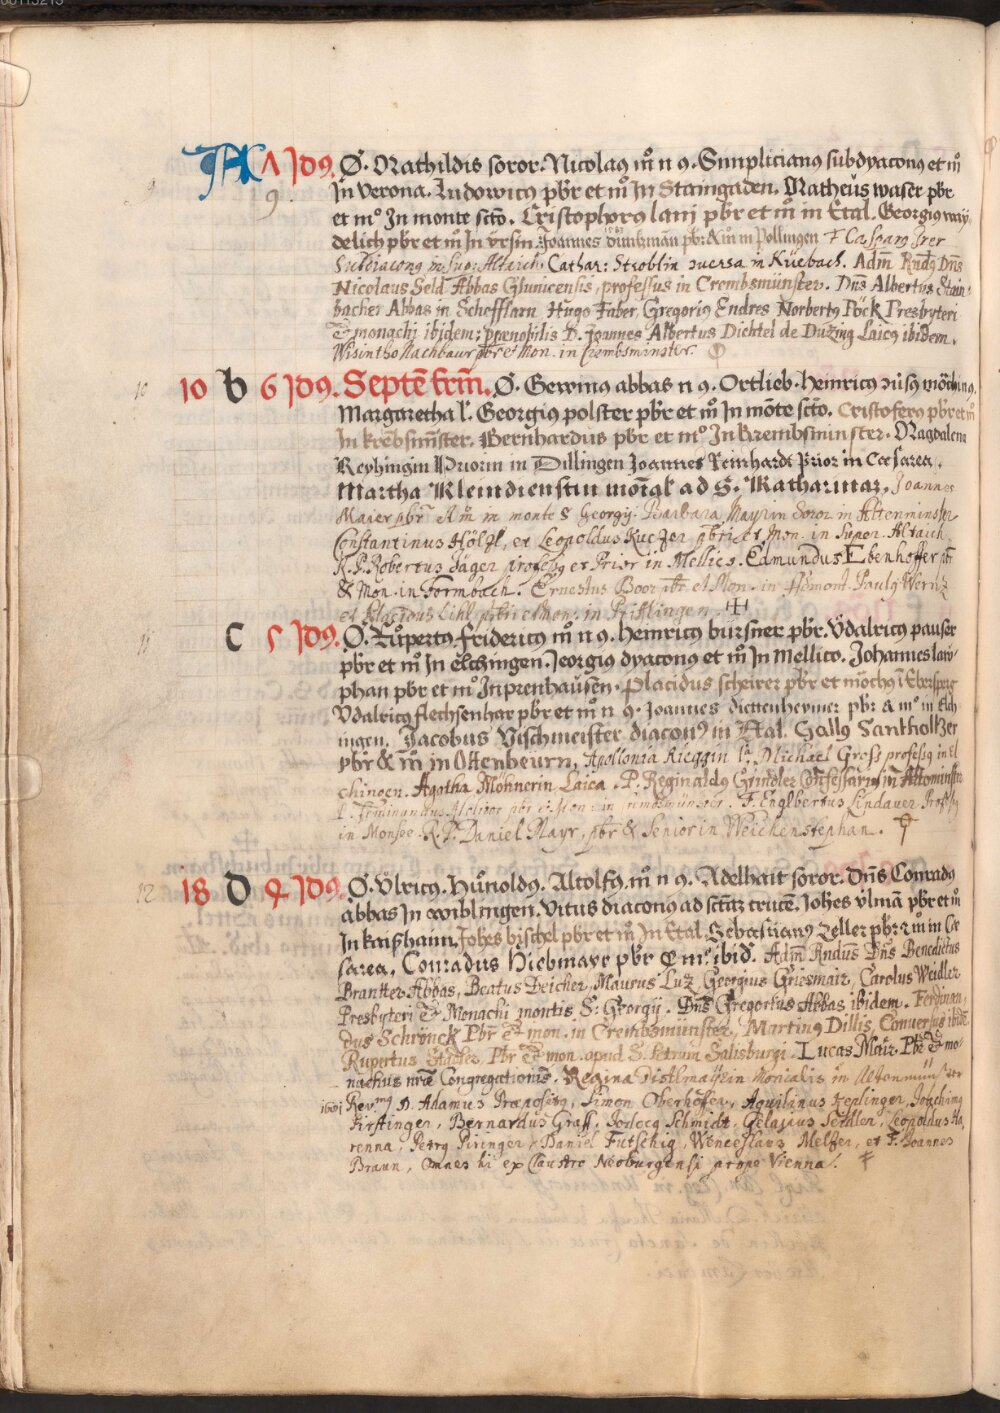 A Λ Jdꝰ. Ø. Mathildis soror. Nicolaꝰ m̊ n ꝰ. Simplicianꝰ subdyaconꝰ et m̊
9 Jn Verona. Ludowicꝰ pb̄r et m̊ Jn Staingaden. Matheus waser pb̄r
et mº Jn monte sc̄to. Cristophorꝰ lanj pb̄r et m̊ in Etal. Georgiꝰ way
delich pb̄r et m̊ Jn vrsin. Joannes dintzman pb̄r: & m̊ in Pollingen F Casparꝰ
Subdiaconꝰ in Sup: Altaich. Cathar: Stroblin in Küebach. Adm̄ Rndꝰ Dn̄s
Nicolaus Seld Abbas Glunicensis, professus in Crembsmünster. Dn̄s Albertus Stain-
bacher Abbas in Schefftlarn Hugo Faber, Gregoriꝰ Endres Norbertꝰ Pöck Presbyteri
& monachj ibidem; prænobilis D. Joannes Albertus Dichtel de Duzing Laicꝰ ibidem.
Wisintho Nachbaur pb̄r et Mon. in Crembsminster.
10 10 b 6 Jdꝰ. Septēbrm̄. Ø. Gerwinꝰ abbas n ꝰ. Ortlieb. Heinricꝰ
Margaretha l. Georgiꝰ polster pb̄r et m̊ Jn mōte sc̄to. Cristoferꝰ pb̄r et m̊
Jn krēbsmn̄ster. Bernhardus pb̄r et mº Jn Krembsminster. Magdalena
Reyhingin Priorin in Dillingen Joannes Reinhardt Prior in Cæsarea.
Martha Kleindienstin mōial ad S. Katharinaz. Joannes
Maier pb̄r et m̊ in monte S Georgij. Barbara Mayrin Soror in Altenminster
Constantinus Hölzl, et Leopoldus pb̄ri et Mon. in Super. Altaich
R. P. Robertus Jäger professꝰ et Prior in Mellico. Edmundus Ebenhoffer pb̄r
& Mon. in Formbach. Ernestus Boor pb̄r et Mon. in Admont. Paulꝰ
et Lihl pb̄ri et Mon. in Prifflingen.
C 5 Jdꝰ. Ø. Rupertꝰ. Fridericꝰ m̊ n ꝰ. Heinricꝰ bursner pb̄r. Vdalricꝰ pauser
pb̄r et m̊ Jn elchingen. Jeorgiꝰ dyaconꝰ et m̊ Jn Mellico. Johannes
phan pb̄r et mº Jn prenhausen. Placidus scheirer pb̄r et mōchꝰ ī Ebersperg
Vdalricꝰ flechsenhar pb̄r et m̊ n ꝰ. Joannes diettenheymer pb̄r: & mº in Elch
ingen. Jacobus Vischmeister diaconꝰ in Etal. Gallꝰ Santholtzer
pb̄r & m̊ in Ottenbeurn. Apollonia Rieggin la. Michael Gross professꝰ in El
chingen. Agatha Mohnerin Laica. P. Reginaldꝰ Grindler Confessariꝰ in Altominster
P. Ferdinandus pb̄r et Mon. in Cremsmünster. F. Englbertus Lindauer
in Monsee. R. P. Daniel Mayr, pb̄r & Senior in Weichenstephan.
12 18 D 4 Jdꝰ. Ø. Vlricꝰ. Hunoldꝰ. Altolfꝰ. m̊ n ꝰ. Adelhait soror. Dn̄s Conradꝰ
abbas Jn wiblingen̄. Vitus diaconus ad sctāz crucē. Johēs vlmā pb̄r et m̊
Jn kaißhaim. Johēs bischel pb̄r et m̊ Jn Etal. Sebastianꝰ Zeller pb̄r & m̊ in Cæ
sarea. Conradus Hiebmayr pb̄r & mº. ibid. Adm̄ Rndus Dn̄s Benedictus
Brantter Abbas, Beatus Deicher, Maurus Luz Georgius Griesmair, Carolus Weidler
Presbyteri & Monachi montis S: Georgij. Dn̄s Gregorius Abbas ibidem. Ferdinan-
dus Schrönck Pb̄r & mon. in Crembsmünster, Martinꝰ Dillis, Conversus ibidē
Rupertus Stadler Pb̄r & mon. apud S. Petrum Salisburgi. Lucas Mair Pb̄r & mo-
nachus nr̄æ Congregationis. Regina Distlmayrin Monialis in Altonmünster
Rev.mꝰ D. Adamus Præpositꝰ, Simon Oberhoffer, Aquilinus Keplinger, Joachimꝰ
Kirstinger, Bernardus Graff, Jodocꝰ Schmidt, Gelasius Seidlen, Leopoldus Ha
renna, Petrꝰ Piringer, Daniel Futschig, Wenceslaus Melzer, et F. Joannes
Braun, Omnes hi ex Claustro Neoburgensi prope Viennā.